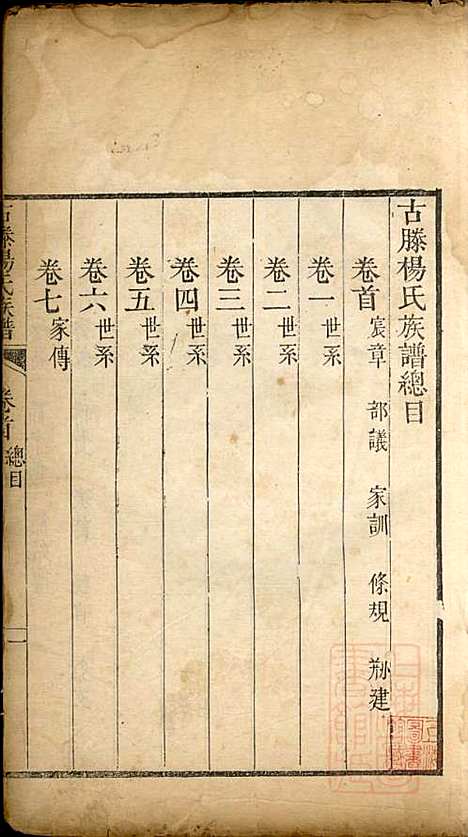 古滕楊氏族譜總目
卷首 宸章 部議 家訓 條規 剏建
卷一 世系
卷二 世系
卷三 世系
卷四 世系
卷五 世系
卷六 世系
卷七 家傳
古滕楊氏族譜 卷首 總目 一